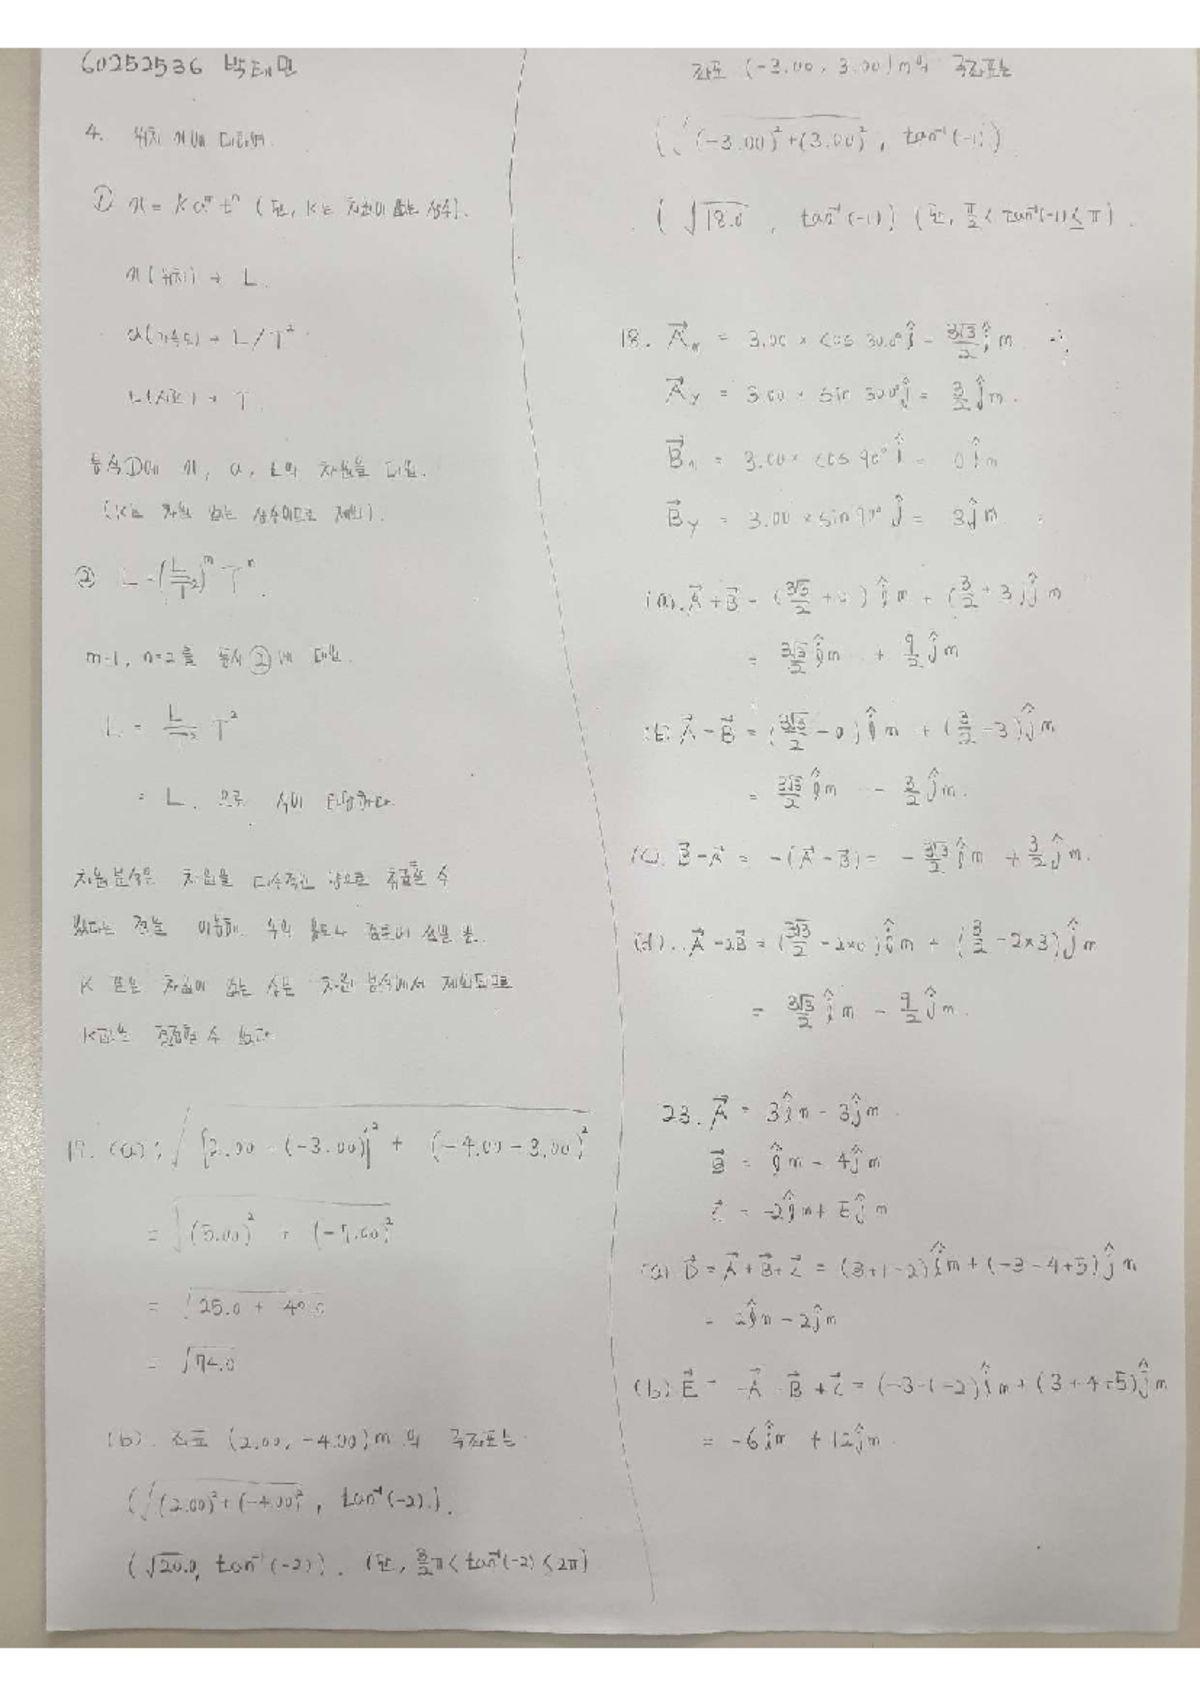 60252536 박태민
4. 위치 x에 대하여
① x = k a^m t^n (단, k는 차원이 없는 상수).
x(위치) → L.
a(가속도) → L/T²
t(시간) → T.
등식①에 x, a, t의 차원을 대입.
(k는 차원 없는 상수이므로 제외).
② L = (L/T²)^m T^n.
m=1, n=2를 등식②에 대입.
L = L/T² T²
= L. 으로 식이 타당하다.
차원분석은 차원을 대수적인 양으로 취급할 수
있다는 점을 이용해, 식의 검토에
k 또한 차원이 없는 상수 차원 분석에서 제외되므로
k값은 결정할 수 없다.
17. (a); √{2.00 - (-3.00)}² + (-4.00 - 3.00)²
= √(5.00)² + (-7.00)²
= √25.0 + 49.0
= √74.0
(b). 좌표 (2.00, -4.00)m의 극좌표는
(√(2.00)²+(-4.00)², tan⁻¹(-2)).
(√20.0, tan⁻¹(-2)). (단, 3/2π < tan⁻¹(-2) < 2π)
좌표 (-3.00, 3.00)m의 극좌표는
(√(-3.00)²+(3.00)², tan⁻¹(-1))
(√18.0, tan⁻¹(-1)) (단, π/2 < tan⁻¹(-1) ≤ π).
18. A⃗x = 3.00 × cos 30.0° î = 3√3/2 î m
A⃗y = 3.00 × sin 30.0° ĵ = 3/2 ĵ m.
B⃗x = 3.00 × cos 90° î = 0 î m
B⃗y = 3.00 × sin 90° ĵ = 3ĵ m
(a). A⃗+B⃗ = (3√3/2 + 0) î m + (3/2 + 3) ĵ m
= 3√3/2 î m + 9/2 ĵ m
(b) A⃗-B⃗ = (3√3/2 - 0) î m + (3/2 - 3) ĵ m
= 3√3/2 î m - 3/2 ĵ m.
(c). B⃗-A⃗ = -(A⃗-B⃗) = -3√3/2 î m + 3/2 ĵ m.
(d). A⃗-2B⃗ = (3√3/2 - 2×0) î m + (3/2 - 2×3) ĵ m
= 3√3/2 î m - 9/2 ĵ m.
23. A⃗ = 3î m - 3ĵ m
B⃗ = î m - 4ĵ m
C⃗ = -2î m + 5ĵ m
(a). D⃗ = A⃗+B⃗+C⃗ = (3+1-2) î m + (-3-4+5) ĵ m
= 2î m - 2ĵ m
(b). E⃗ = -A⃗ - B⃗ + C⃗ = (-3-1-2) î m + (3+4+5) ĵ m
= -6î m + 12ĵ m.